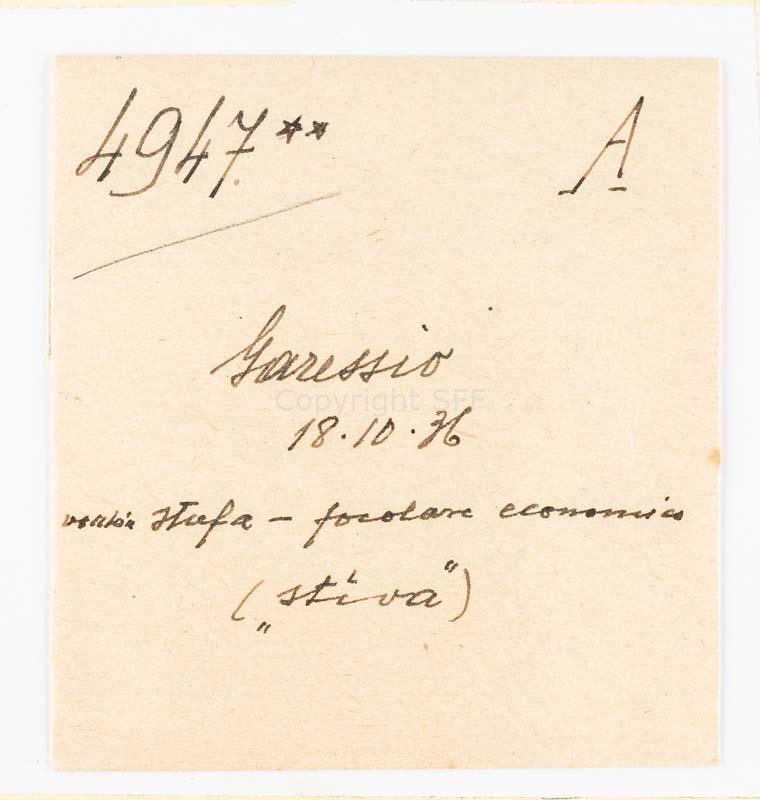 4947** A
Garessio
Copyright SFF
18.10.36
stufa – focolare economico
(„stiva")